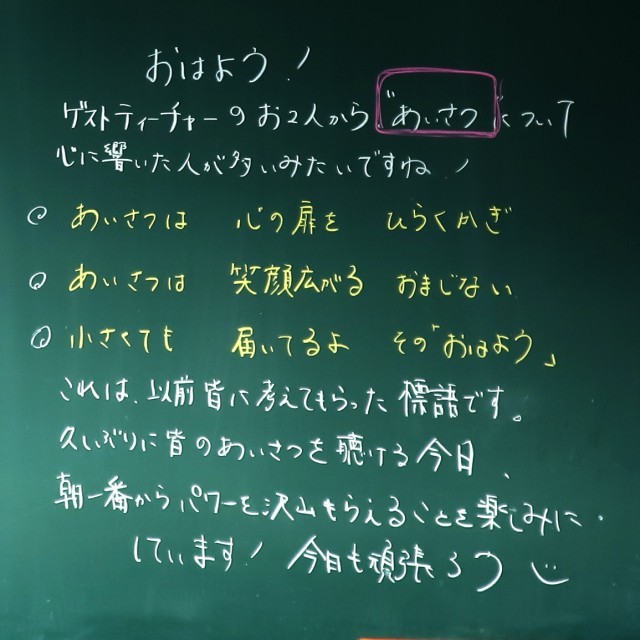 おはよう!
ゲストティーチャーのお2人から"あいさつ"について
心に響いた人が多いみたいですね!
あいさつは 心の扉を ひらくかぎ
あいさつは 笑顔広がる おまじない
小さくても 届いてるよ その「おはよう」
これは、以前皆に考えてもらった標語です。
久しぶりに皆のあいさつを聴ける今日、
朝一番からパワーを沢山もらえることを楽しみに
しています! 今日も頑張ろう